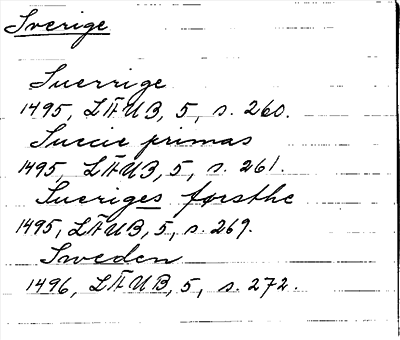 Sverige
Suerrige
1495, LÄUB, 5, s. 260.
Succie primas
1495, LÄUB, 5, s. 261.
Sueriges førsthe
1495, LÄUB, 5, s. 269.
Sweden
1496, LÄUB, 5, s. 272.